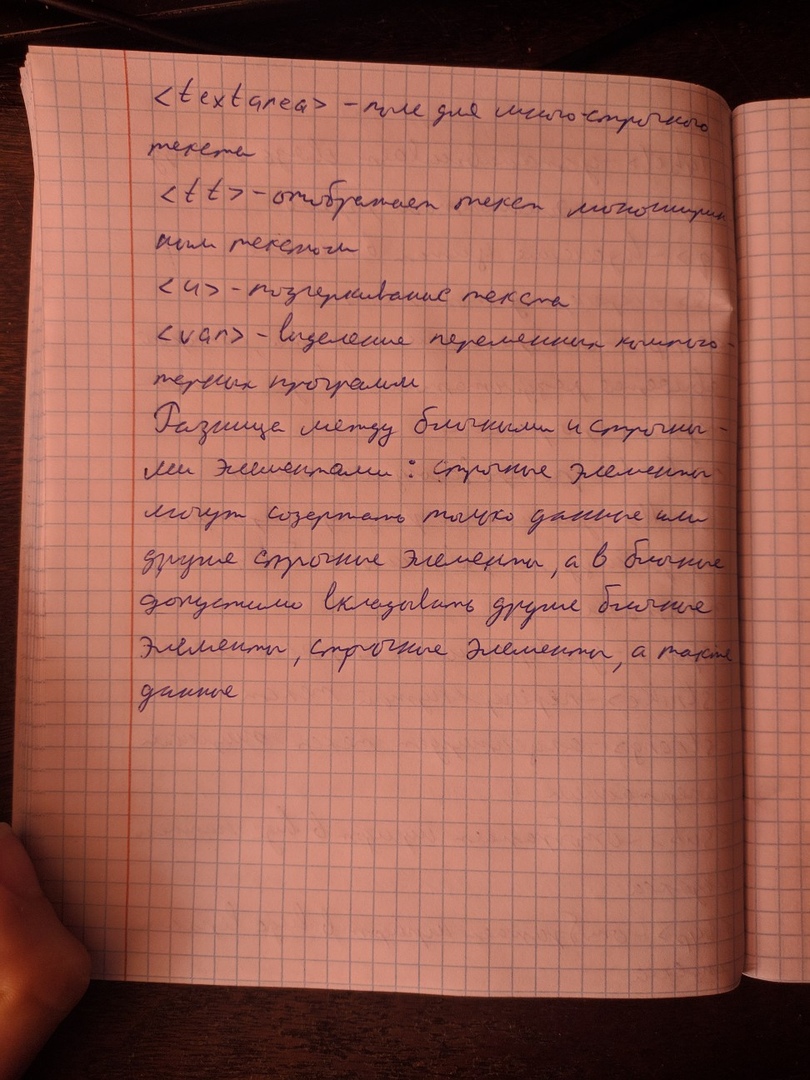 <textarea> - поле для много-строчного
текста
<tt> - отображает текст моноширин
ным текстом
<u> - подчеркивание текста
<var> - выделение переменных компью-
терных программ
Разница между блочными и строчны-
ми элементами: строчные элементы
могут содержать только данные или
другие строчные элементы, а в блочные
допустимо вкладывать другие блочные
элементы, строчные элементы, а также
данные